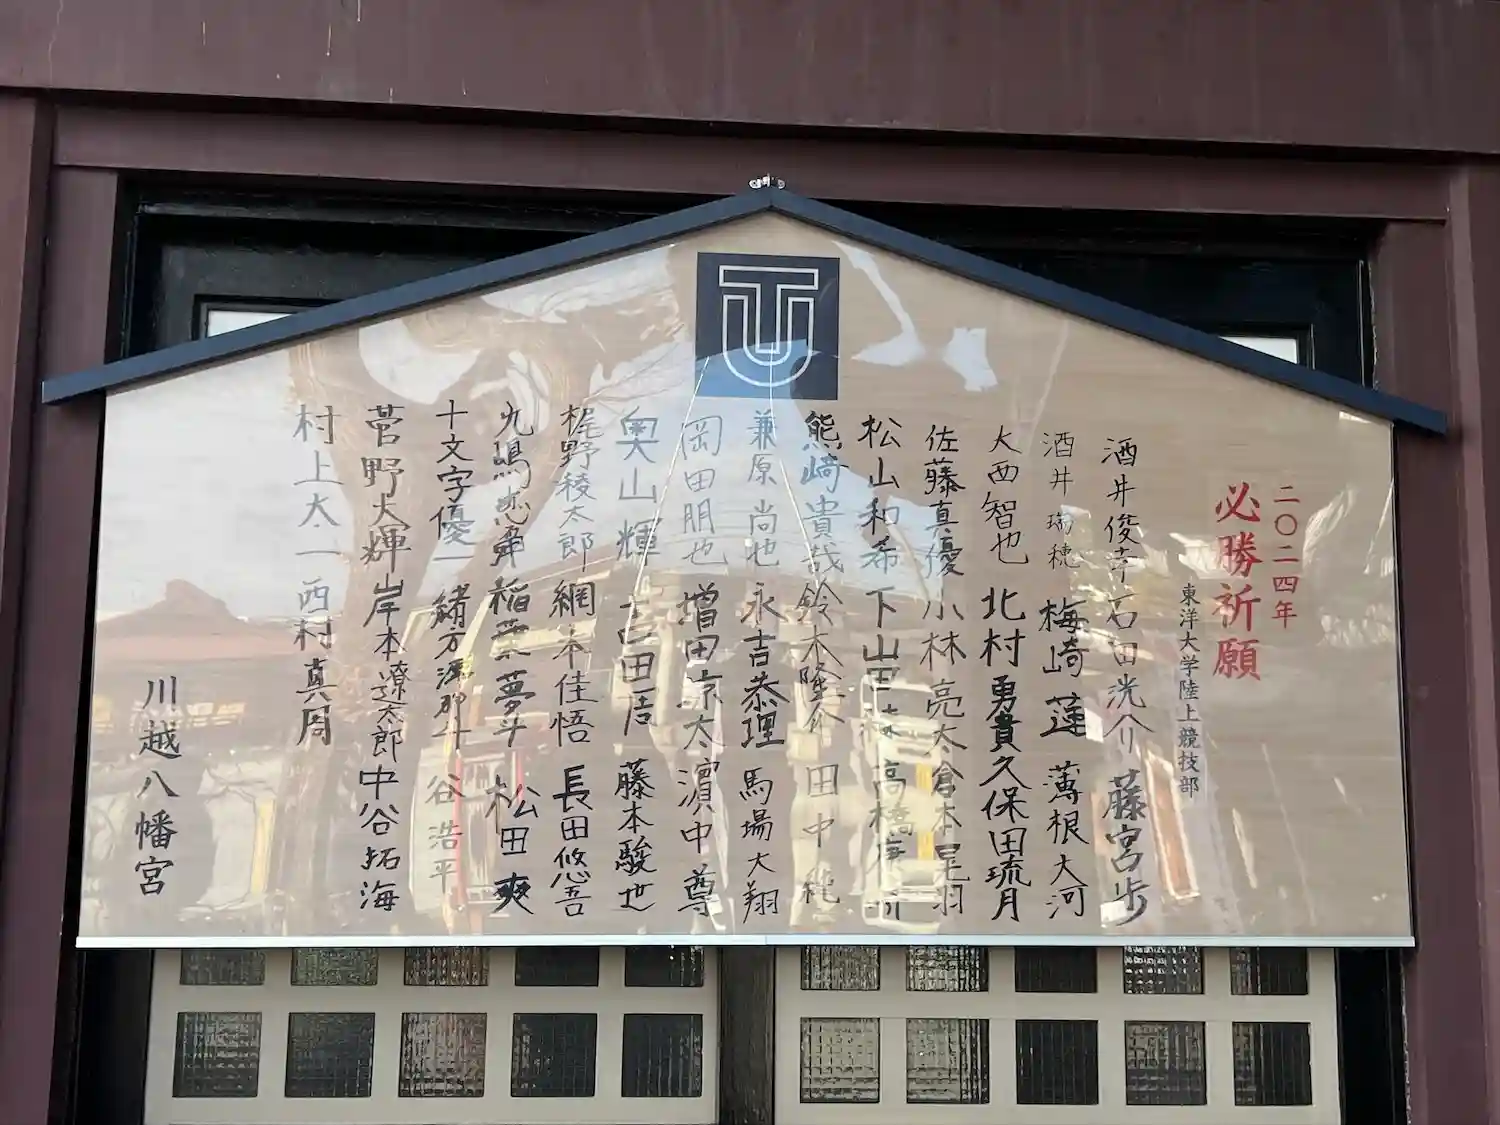 二〇二四年
必勝祈願
東洋大学陸上競技部
酒井俊幸 石田洸介 藤宮歩
酒井瑞穂 梅崎蓮 薄根大河
大西智也 北村勇貴 久保田琉月
佐藤真優 小林亮太 倉本晃羽
松山和希 下山田 高橋
熊﨑貴哉 鈴木隆介 田中純
兼原尚也 永吉恭理 馬場大翔
岡田朋也 増田涼太 濱中尊
奥山輝 吉田周 藤本駿世
梶野稜太郎 網本佳悟 長田悠吾
九嶋恵舜 稲葉夢斗 松田爽
十文字優一 緒方澪那斗 谷浩平
菅野大輝 岸本遼太郎 中谷拓海
村上太一 西村真周
川越八幡宮